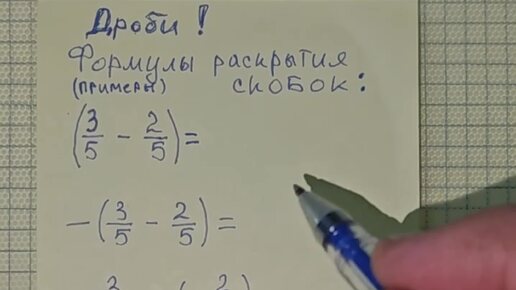 Дроби !
Формулы раскрытия
(примеры) скобок:
(3/5 - 2/5) =
-(3/5 - 2/5) =